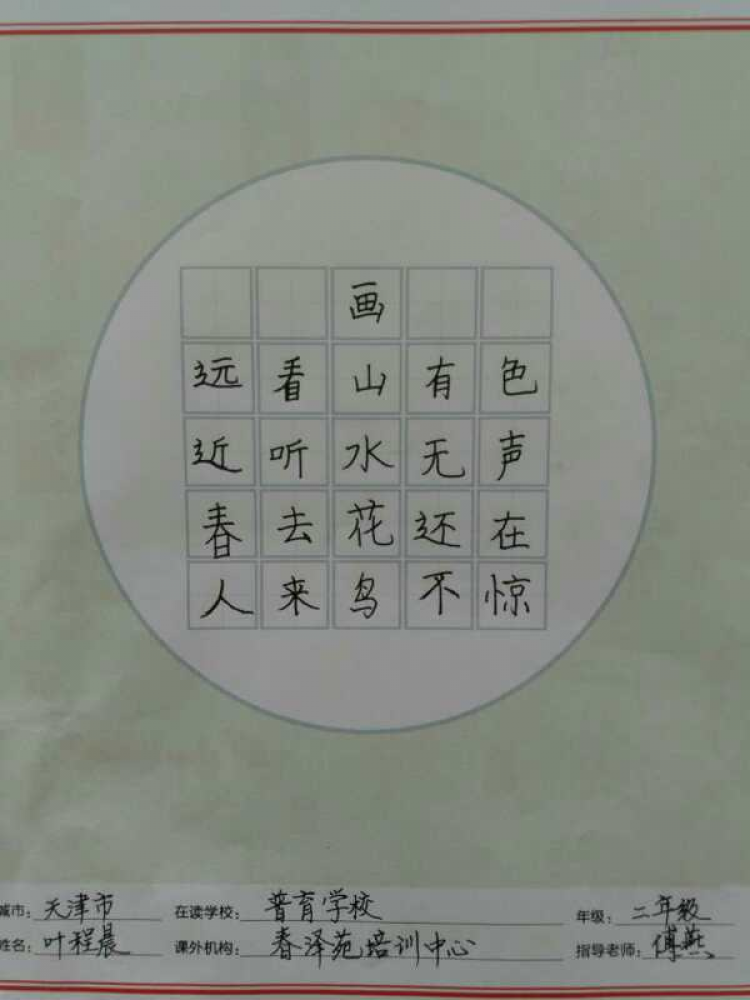 画
远看山有色
近听水无声
春去花还在
人来鸟不惊
城市：天津市 在读学校：普育学校 年级：二年级
姓名：叶程晨 课外机构：春泽苑培训中心 指导老师：傅燕